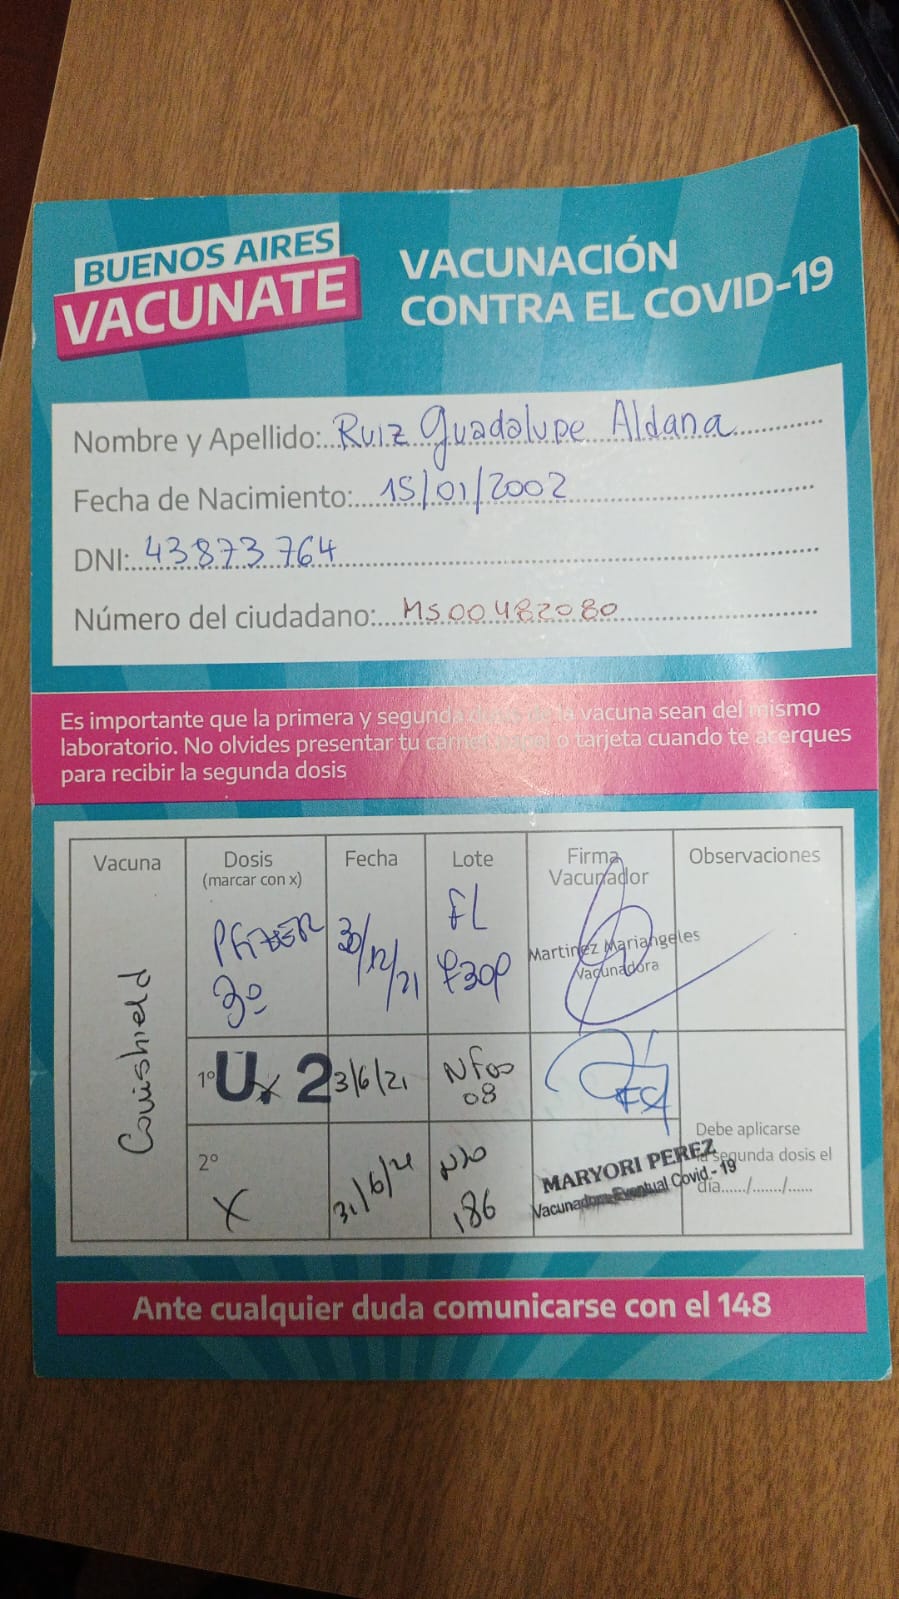 BUENOS AIRES
VACUNATE
VACUNACIÓN
CONTRA EL COVID-19
Nombre y Apellido: Ruiz Guadalupe Aldana
Fecha de Nacimiento: 15/01/2002
DNI: 43873764
Número del ciudadano: MS00482080
Es importante que la primera y segunda dosis de la vacuna sean del mismo
laboratorio. No olvides presentar tu carnet papel o tarjeta cuando te acerques
para recibir la segunda dosis
Vacuna Dosis Fecha Lote Firma Observaciones
(marcar con x) Vacunador
Covishield
PFIZER 30/12/21 FL
3º
Martinez Mariangeles
Vacunadora
1º x U. 2 3/6/21 NF00
08
2º
X
186
MARYORI PEREZ
Vacunadora Eventual Covid - 19
Debe aplicarse
la segunda dosis el
día....../......./......
Ante cualquier duda comunicarse con el 148